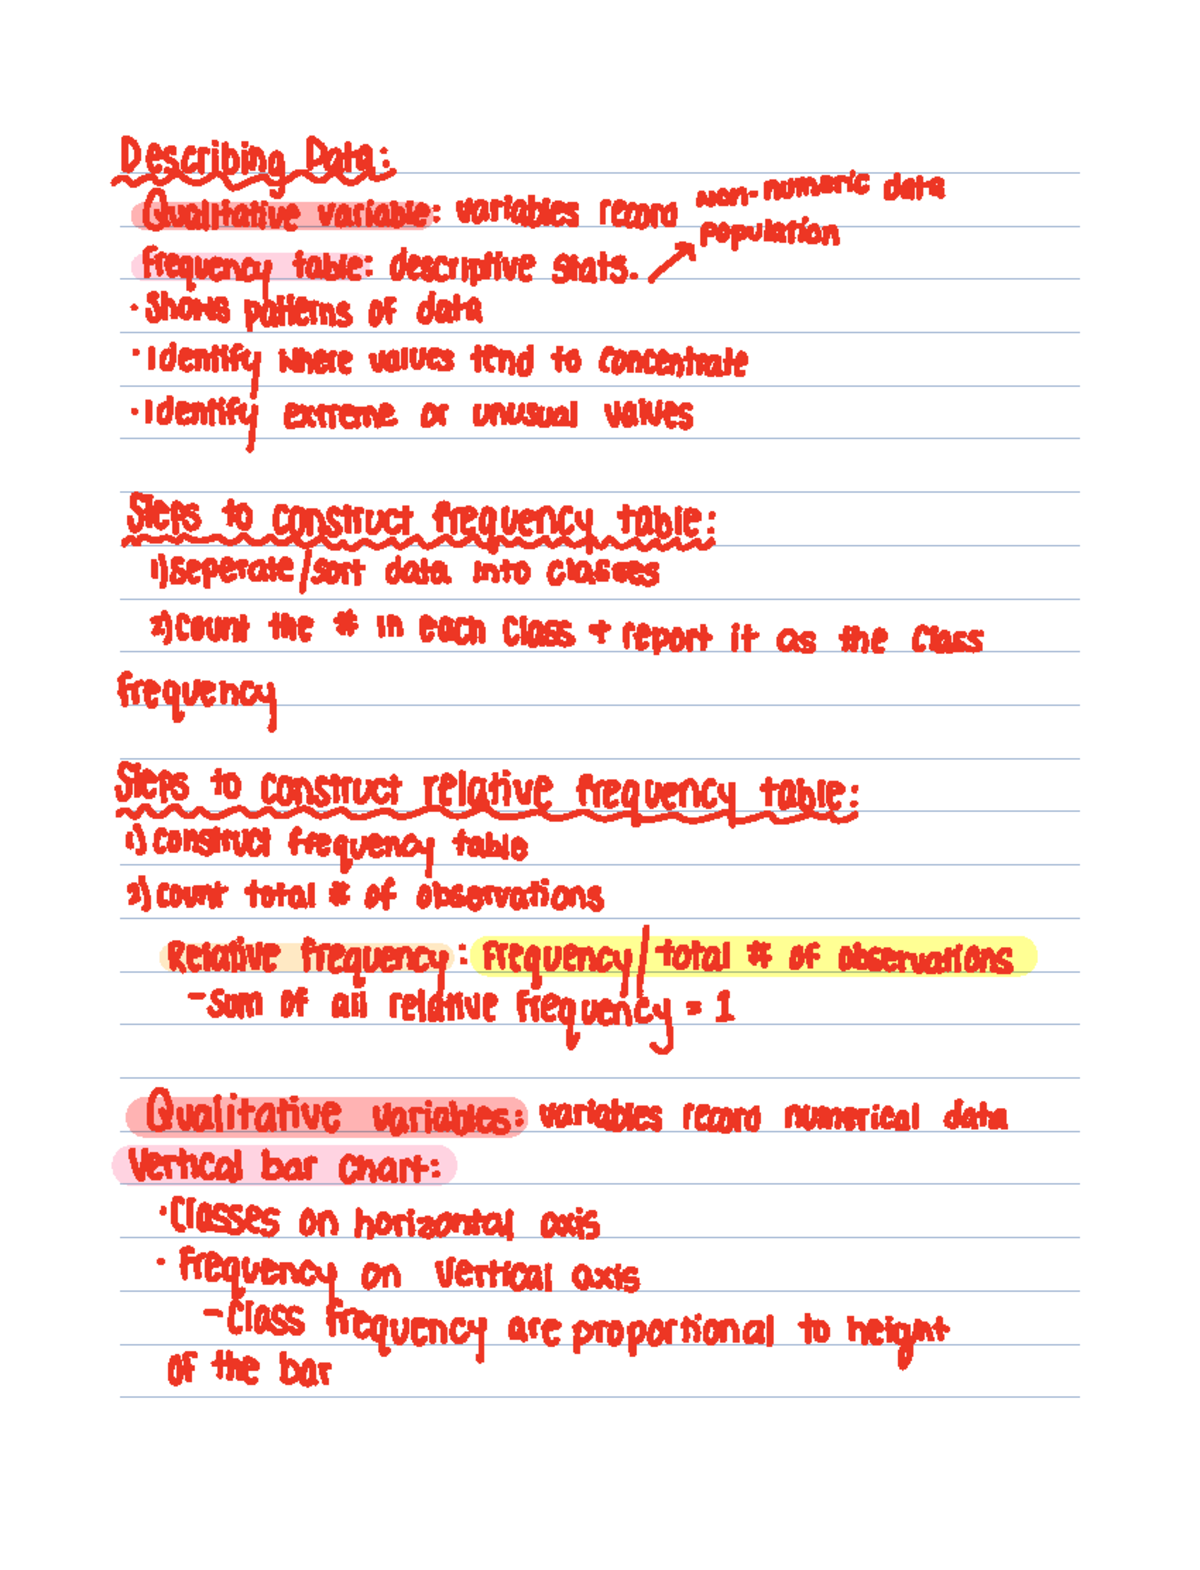 Describing Data:
Qualitative variable: variables record non-numeric data
population
frequency table: descriptive stats.
· Shows patterns of data
· Identify where values tend to concentrate
· Identify extreme or unusual values
Steps to construct frequency table:
1) seperate/sort data into classes
2) count the # in each class + report it as the class
frequency
Steps to construct relative frequency table:
1) construct frequency table
2) count total # of observations
Relative frequency: frequency/total # of observations
- Sum of all relative frequency = 1
Qualitative variables: variables record numerical data
Vertical bar chart:
· Classes on horizontal axis
· Frequency on vertical axis
- Class frequency are proportional to height
of the bar